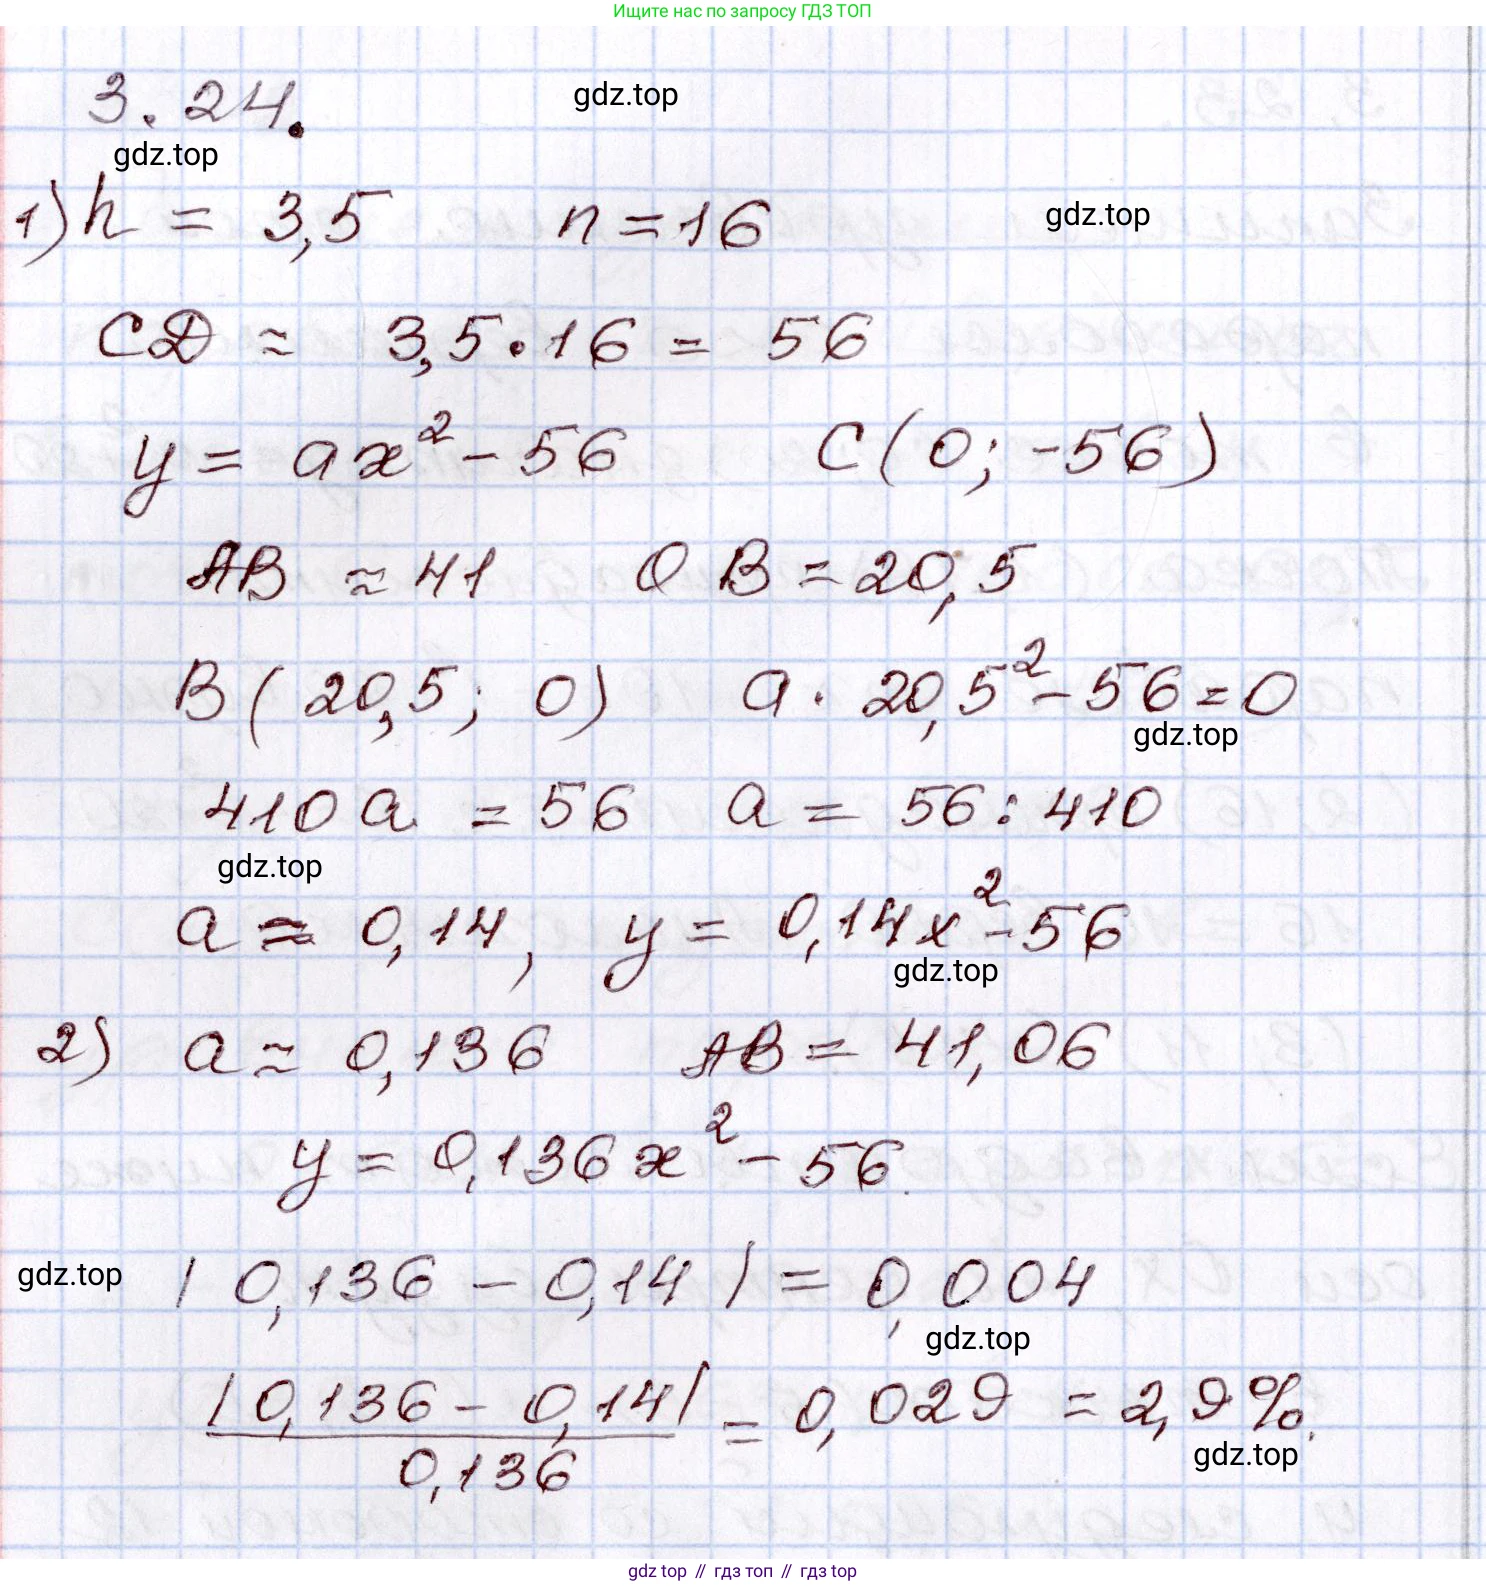 Ищите нас по запросу ГДЗ ТОП
3.24.
gdz.top
gdz.top
1) h = 3,5 n = 16
gdz.top
CD ≈ 3,5·16 = 56
y = ax² - 56 C(0; -56)
AB ≈ 41 OB = 20,5
B(20,5; 0) a · 20,5² - 56 = 0
gdz.top
410a = 56 a = 56 : 410
gdz.top
a ≈ 0,14, y = 0,14x² - 56
gdz.top
2) a ≈ 0,136 AB = 41,06
y = 0,136x² - 56.
gdz.top
|0,136 - 0,14| = 0,004
gdz.top
|0,136 - 0,14| / 0,136 = 0,029 = 2,9%.
gdz.top
gdz top // гдз топ // гдз top